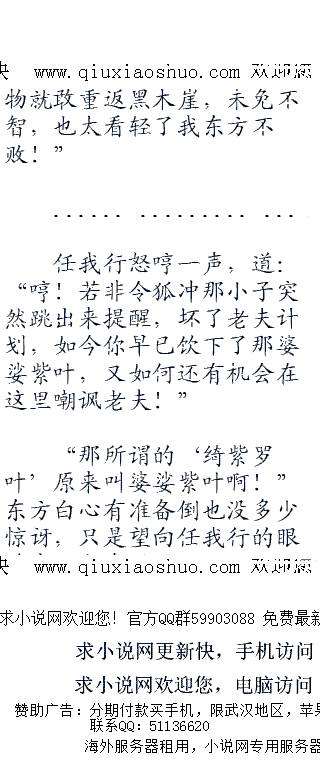 快 www.qiuxiaoshuo.com 欢迎您
物就敢重返黑木崖，未免不
智，也太看轻了我东方不
败！”
...... ......... ... ...
任我行怒哼一声，道：
“哼！若非令狐冲那小子突
然跳出来提醒，坏了老夫计
划，如今你早已饮下了那婆
娑紫叶，又如何还有机会在
这里嘲讽老夫！”
“那所谓的‘绮紫罗
叶’原来叫婆娑紫叶啊！”
东方白心有准备倒也没多少
惊讶，只是望向任我行的眼
快 www.qiuxiaoshuo.com 欢迎您
求小说网欢迎您！官方QQ群59903088 免费最新
求小说网更新快，手机访问
求小说网欢迎您，电脑访问
赞助广告：分期付款买手机，限武汉地区，苹果
联系QQ：51136620
海外服务器租用，小说网专用服务器